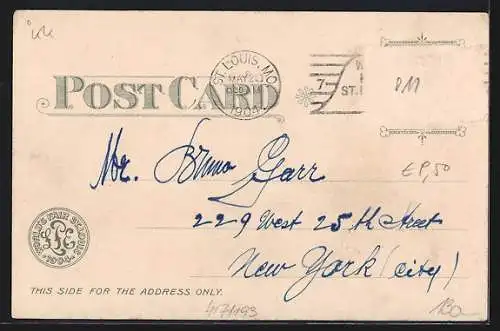 POST CARD
ST. LOUIS, MO.
MAY 23
1904
7
ST.
Mr. Bruno Garr
229 West 25th Street
New York (City)
WORLD'S FAIR ST. LOUIS
1904
THIS SIDE FOR THE ADDRESS ONLY.